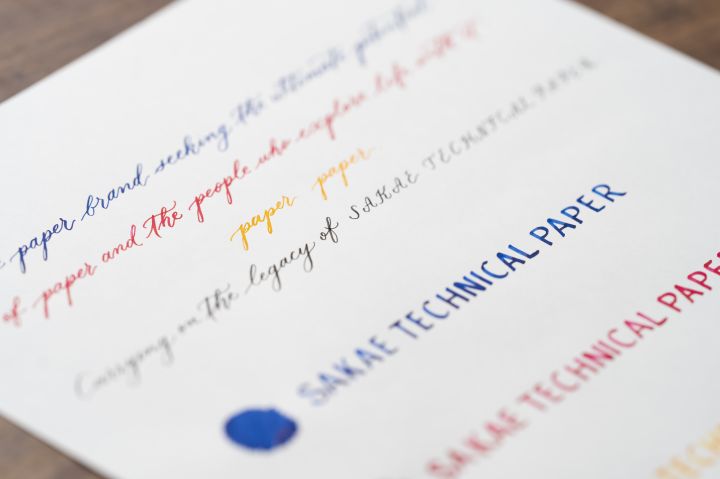 paper brand seeking the ultimate potential
of paper and the people who explore life with it
paper paper
Carrying on the legacy of SAKAE TECHNICAL PAPER
SAKAE TECHNICAL PAPER
SAKAE TECHNICAL PAPER